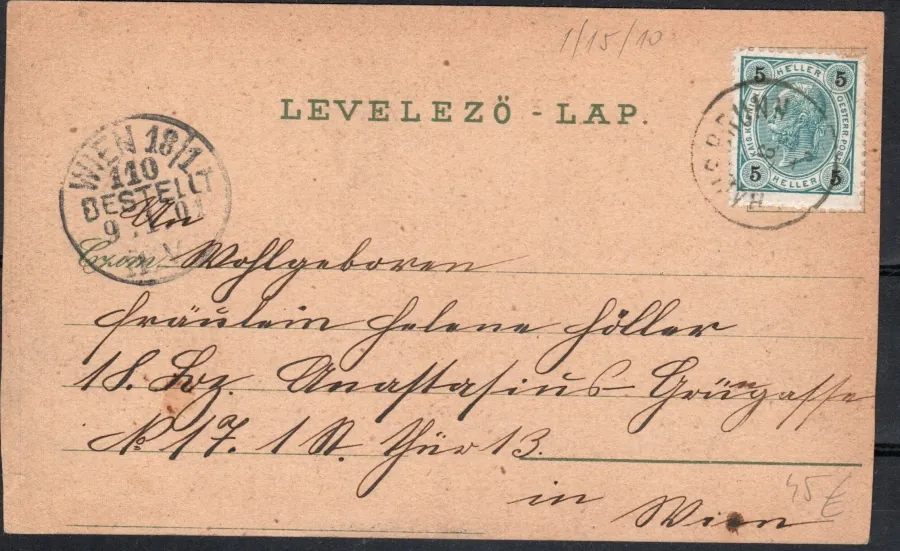 1/15/10
LEVELEZŐ - LAP.
5 HELLER 5
KAIS. KÖNIGL. OESTERR. POST
5 HELLER 5
WIEN 18/1
110
BESTELLT
An
Wohlgeboren
Fräulein Helene Höller
18. Bez. Anastasius-Grüngasse
No 17. 1 St. Thür 13.
in
Wien
45 €